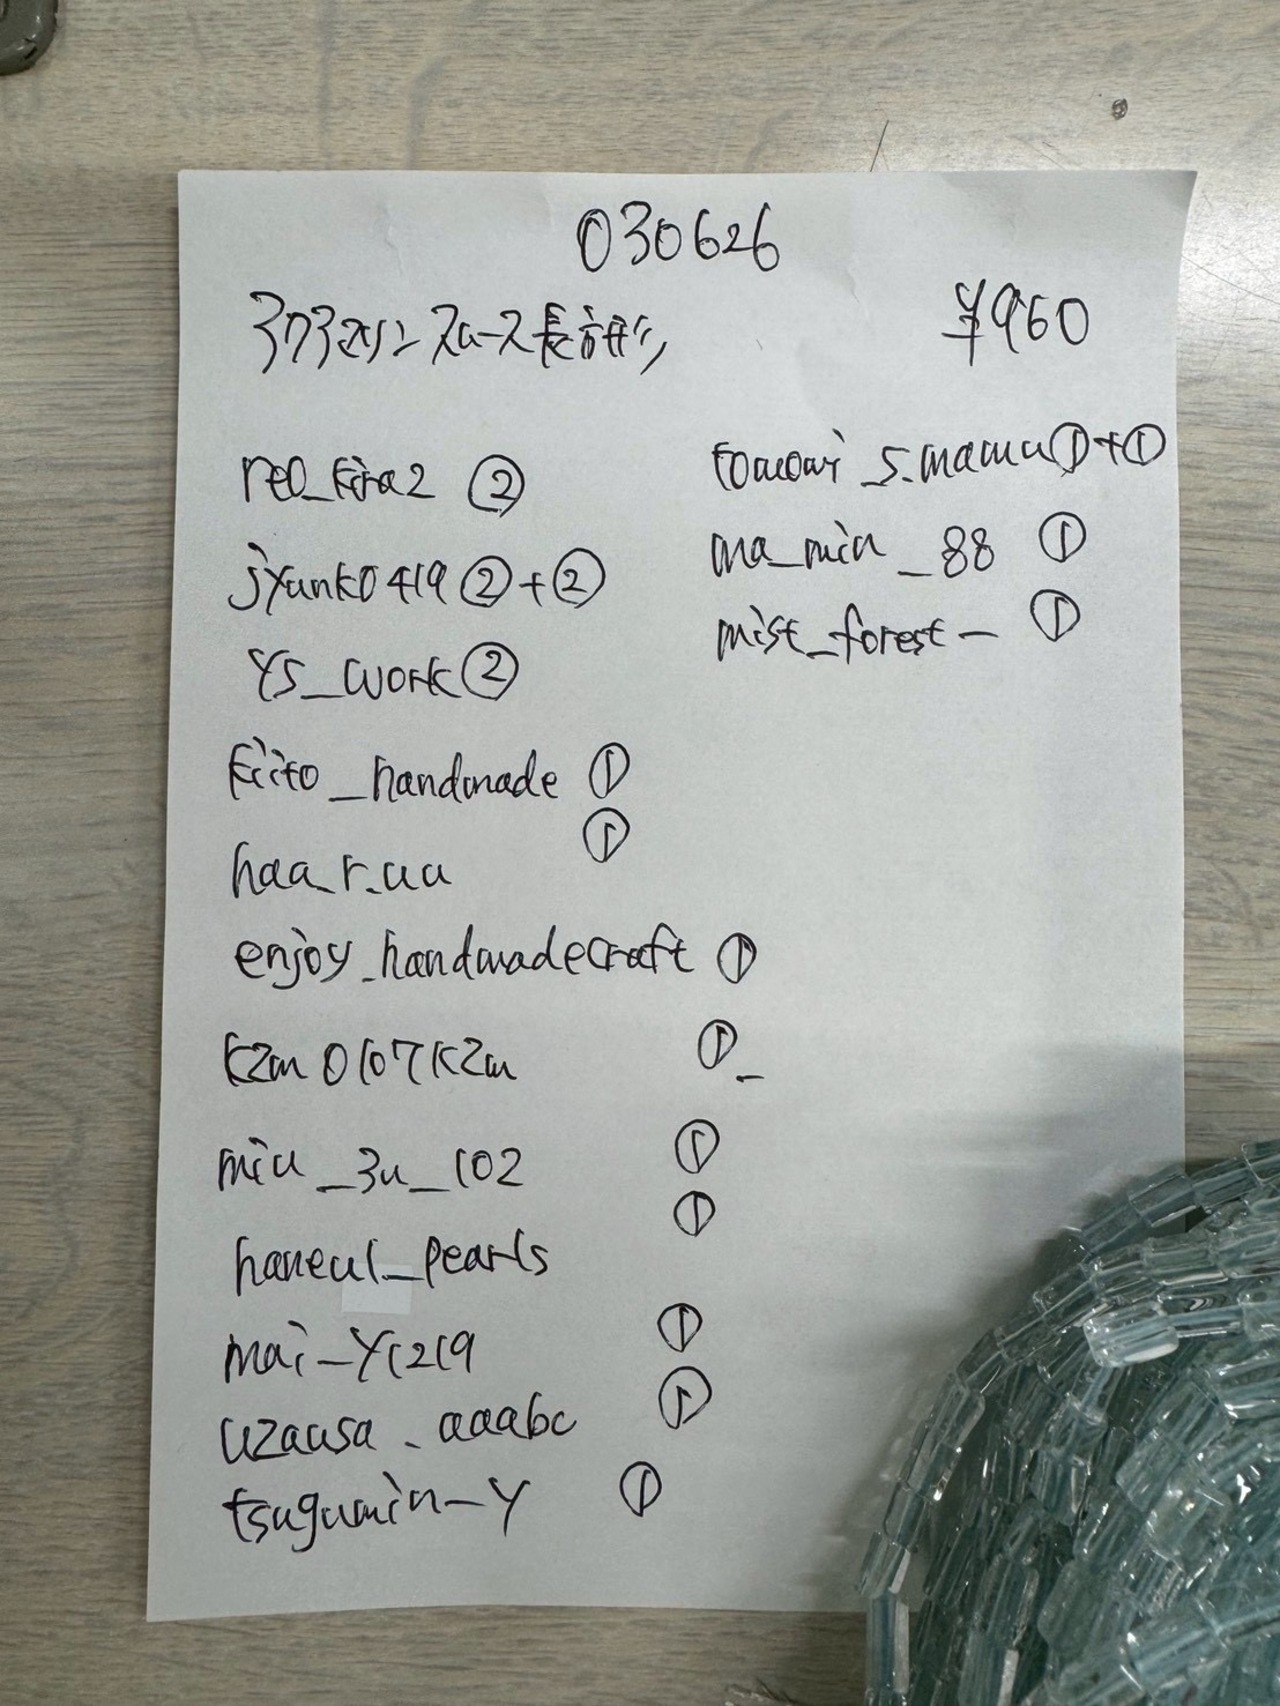 030626
スムース長方形
¥960
reo_kira2 ②
jyunk0419 ②+②
YS_work ②
kiito_handmade ①
haa_r.uu ①
enjoy_handmadecraft ①
kzm0107kzm ①_
miu_3u_102 ①
haneul_pearls ①
mai_y1219 ①
uzausa_aaabc ①
tsugumin_y ①
tomomi_s.mama ①+①
ma_min_88 ①
mist_forest_ ①